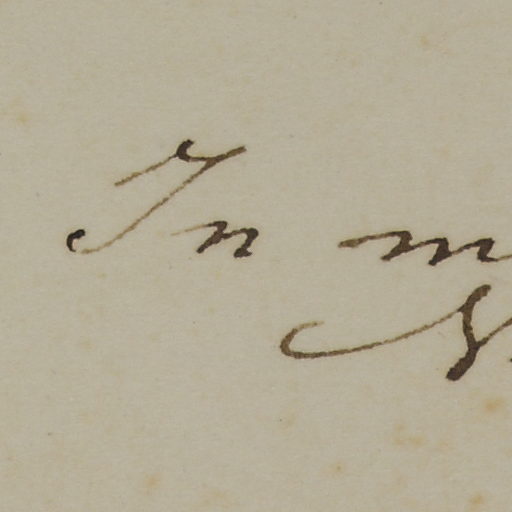 In m